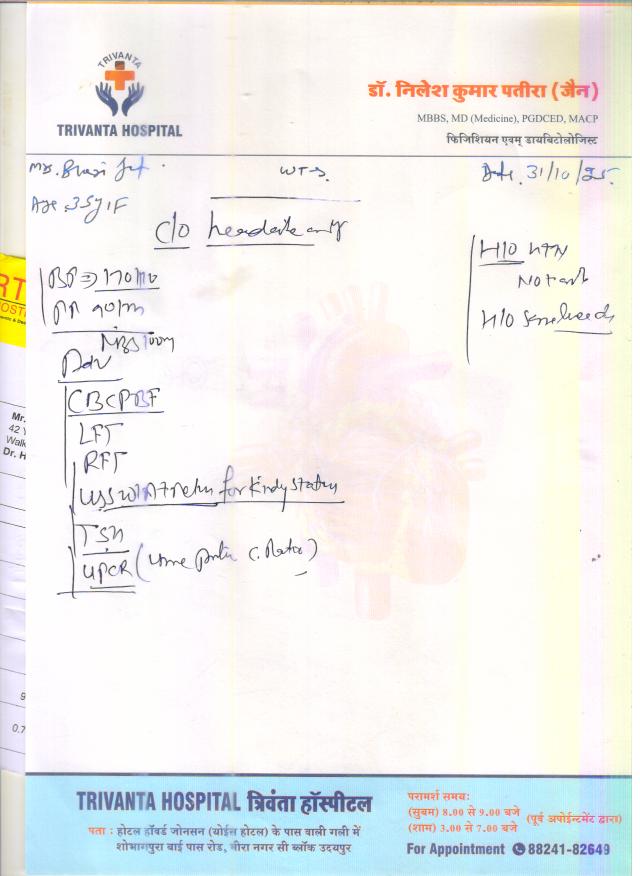 TRIVANTA
TRIVANTA HOSPITAL
डॉ. निलेश कुमार पतीरा (जैन)
MBBS, MD (Medicine), PGDCED, MACP
फिजिशियन एवम् डायबिटोलोजिस्ट
Mrs.
Date. 31/10/25.
Age. 35y/F
C/O headache
H/O HTN
BP ⇒ 170/110
H/O
PR 90/m
Adv
CBC PBF
LFT
RFT
USG for Kidney status
TSH
UPCR (
Mr.
42 Y
Walk
Dr. H
9
0.7
TRIVANTA HOSPITAL त्रिवंता हॉस्पीटल
पता : होटल हॉवर्ड जोनसन (योईस होटल) के पास वाली गली में
शोभागपुरा बाई पास रोड, मीरा नगर सी ब्लॉक उदयपुर
परामर्श समयः
(सुबम) 8.00 से 9.00 बजे
(शाम) 3.00 से 7.00 बजे
(पूर्व अपोईन्टमेंट द्वारा)
For Appointment 88241-82649